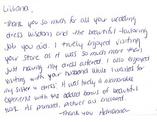 Liliana,
Thank you so much for all your wedding
dress wisdom and the beautiful tailoring
job you did. I truly enjoyed visiting
your store as it was so much more than
just having my dress altered. I also enjoyed
visiting with your husband while I waited for
my sister in dress. It was truly a memorable
experience with the added bonus of beautiful
work. As promised, pictures are enclosed.
Thank you